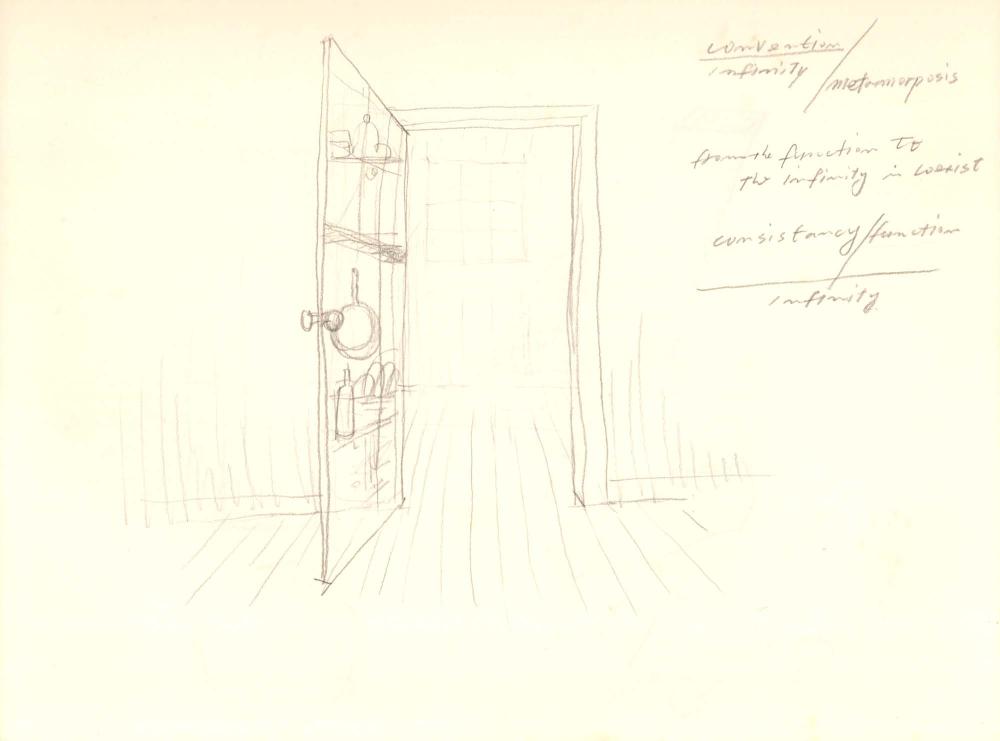 convention
infinity / metamorposis
from the function to
the infinity in coexist
consistancy/function
infinity